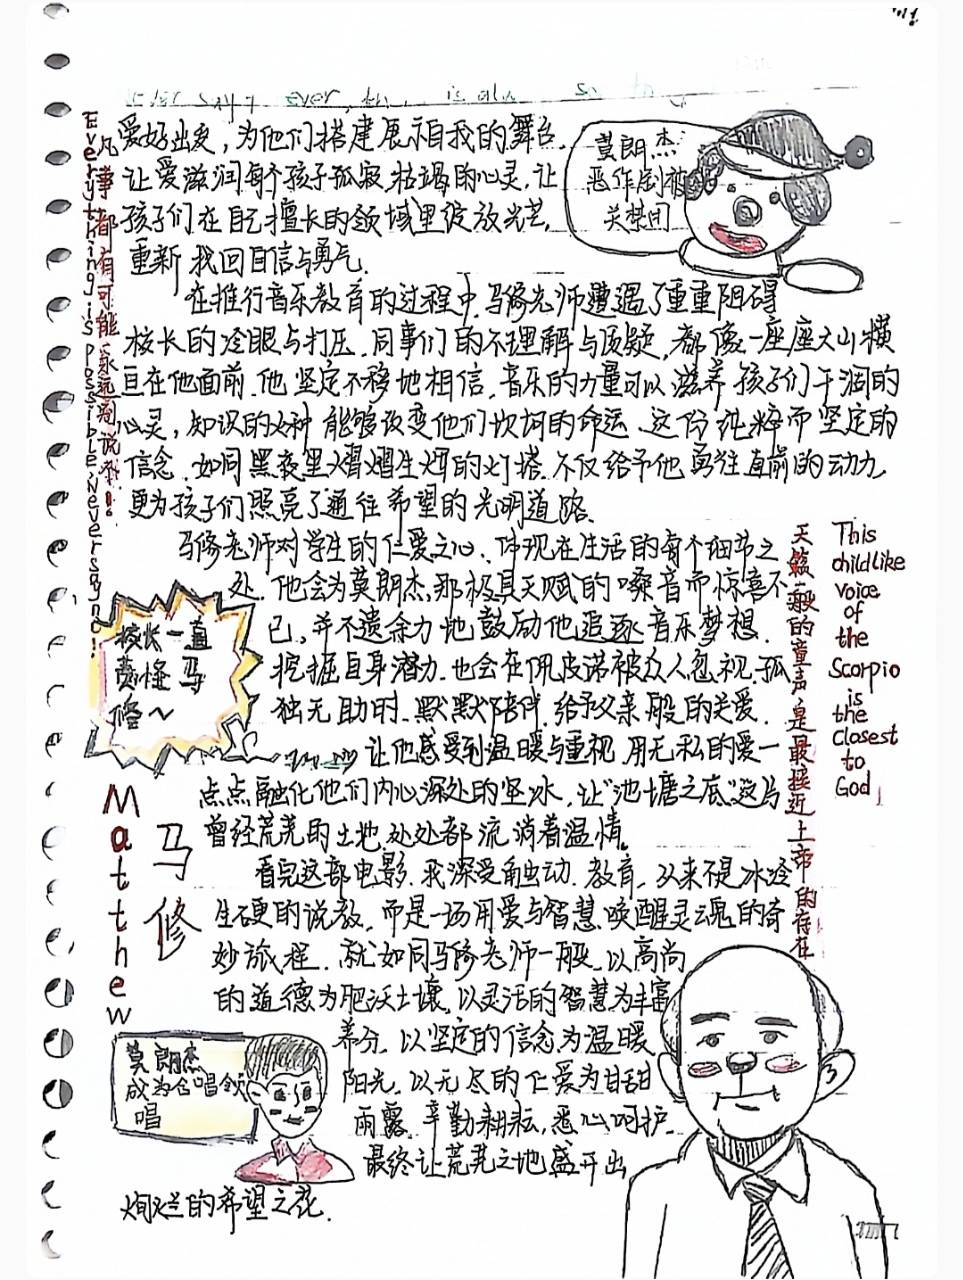 爱好出发，为他们搭建展示自我的舞台.
让爱滋润每个孩子孤寂.枯竭的心灵.让
孩子们在自己擅长的领域里绽放光芒.
重新找回自信与勇气.
在推行音乐教育的过程中.马修老师遭遇了重重阻碍
校长的冷眼与打压.同事们的不理解与质疑，都像一座座大山横
亘在他面前.他坚定不移地相信，音乐的力量可以滋养孩子们干涸的
心灵，知识的火种能够改变他们坎坷的命运.这份纯粹而坚定的
信念.如同黑夜里熠熠生辉的灯塔.不仅给予他勇往直前的动力.
更为孩子们照亮了通往希望的光明道路.
马修老师对学生的仁爱之心、体现在生活的每个细节之
处.他会为莫朗杰那极具天赋的嗓音而惊喜不
已，并不遗余力地鼓励他追逐音乐梦想.
挖掘自身潜力.也会在佩皮诺被众人忽视.孤
独无助时.默默陪伴.给予父亲般的关爱.
让他感受到温暖与重视.用无私的爱一
点点融化他们内心深处的坚冰，让“池塘之底”这片
曾经荒芜的土地处处都流淌着温情。
看完这部电影.我深受触动.教育，从来不是冰冷
生硬的说教，而是一场用爱与智慧唤醒灵魂的奇
妙旅程.就如同马修老师一般.以高尚
的道德为肥沃土壤，以灵活的智慧为丰富
养分.以坚定的信念为温暖
阳光.以无尽的仁爱为甘甜
雨露.辛勤耕耘，悉心呵护.
最终让荒芜之地盛开出
绚烂的希望之花.
Everything is possible.Never say no!
凡事都有可能.永远别说不!
莫朗杰
恶作剧被
关禁闭
校长一直
责怪马
修~
Matthew
马修
莫朗杰
成为合唱领
唱
This
childlike
voice
of
the
Scorpio
is
the
closest
to
God
天籁一般的童声.是最接近上帝的存在